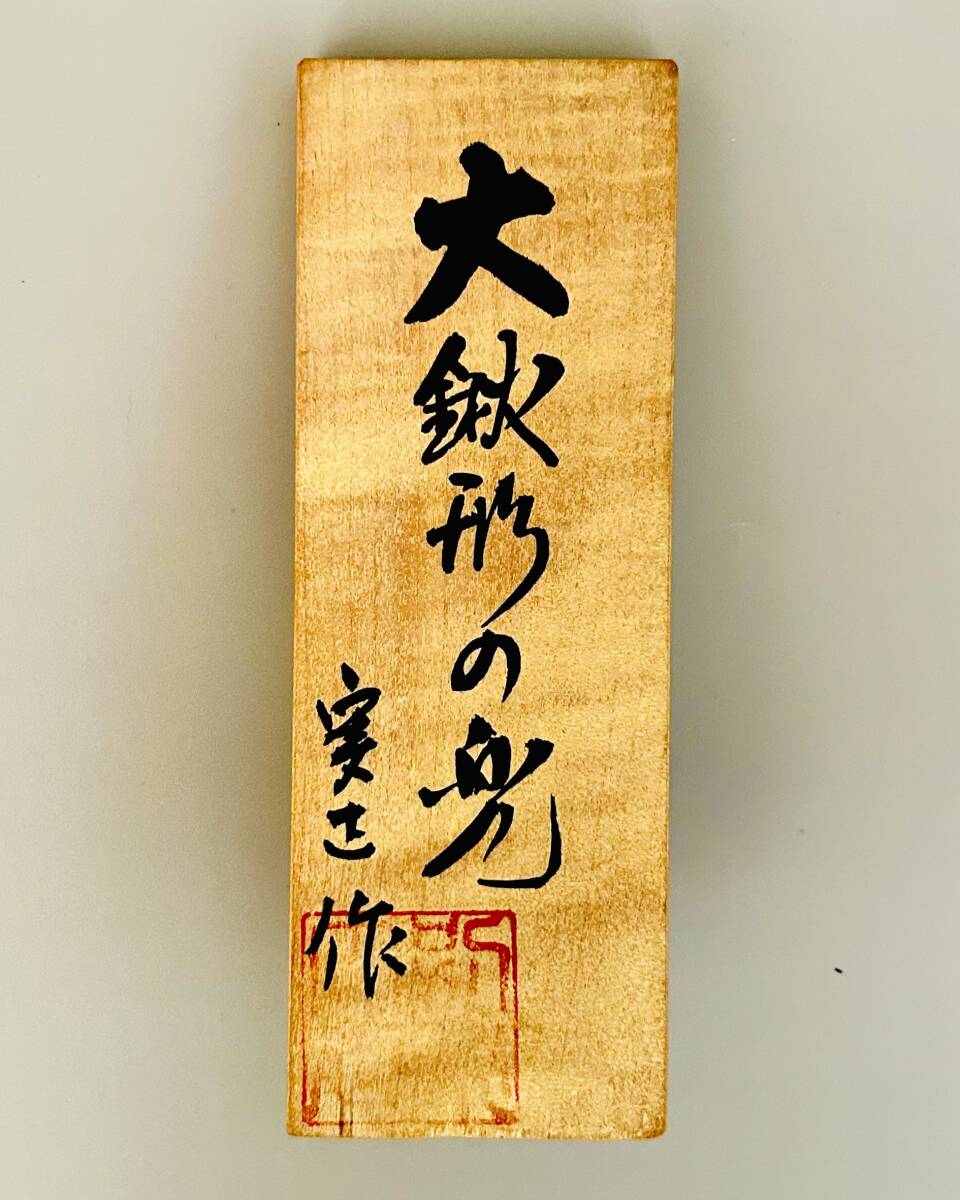 大鍬形の兜
実正作